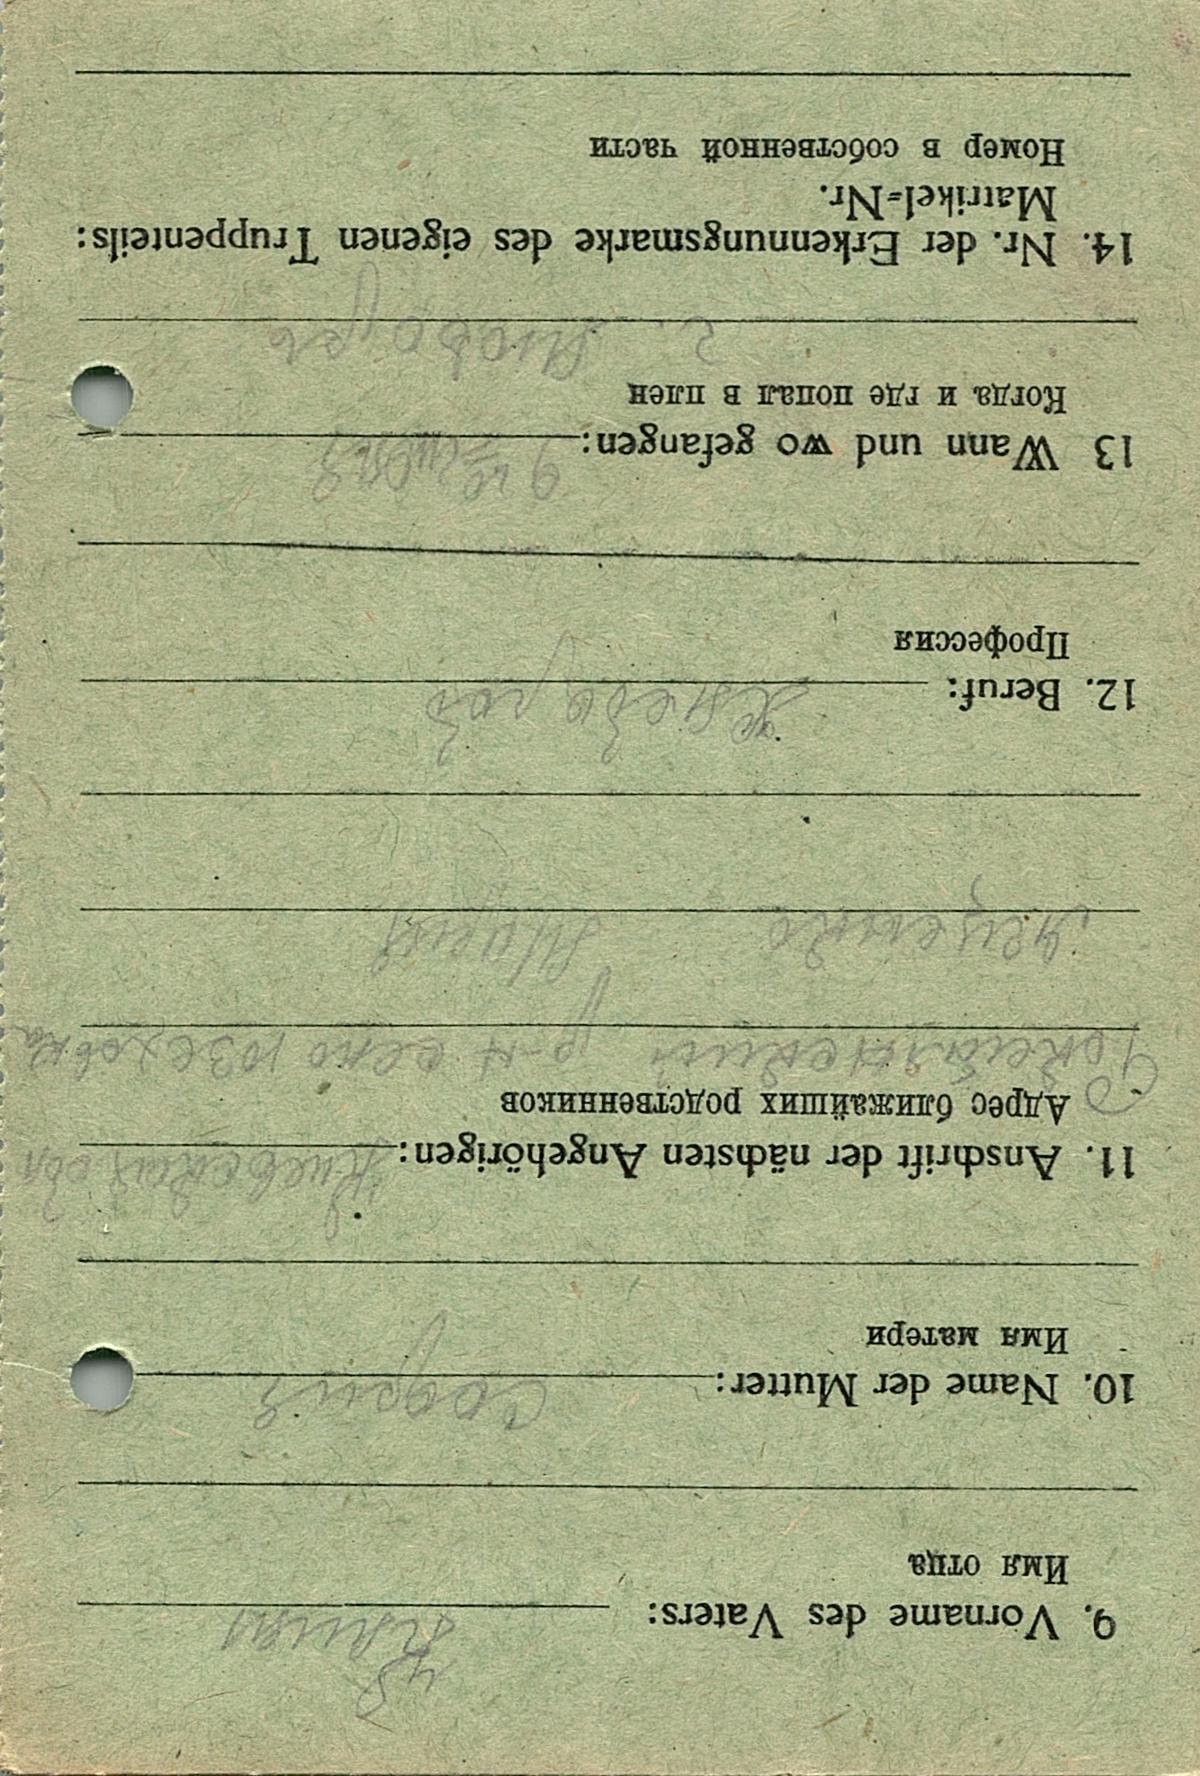 9. Vorname des Vaters:
Имя отца
10. Name der Mutter: София
Имя матери
11. Anschrift der nächsten Angehörigen: Киевская обл
Адрес ближайших родственников
р-н село Юзефовка
Яценко Мария
12. Beruf: Хлебороб
Профессия
13 Wann und wo gefangen:
Когда и где попал в плен
г.
14. Nr. der Erkennungsmarke des eigenen Truppenteils:
Matrikel=Nr.
Номер в собственной части